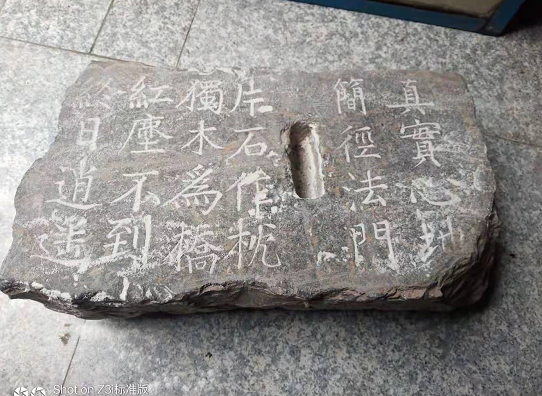 真實心地
簡徑法門
片石作枕
獨木為橋
紅塵不到
終日逍遥
Shot on Z3i标准版